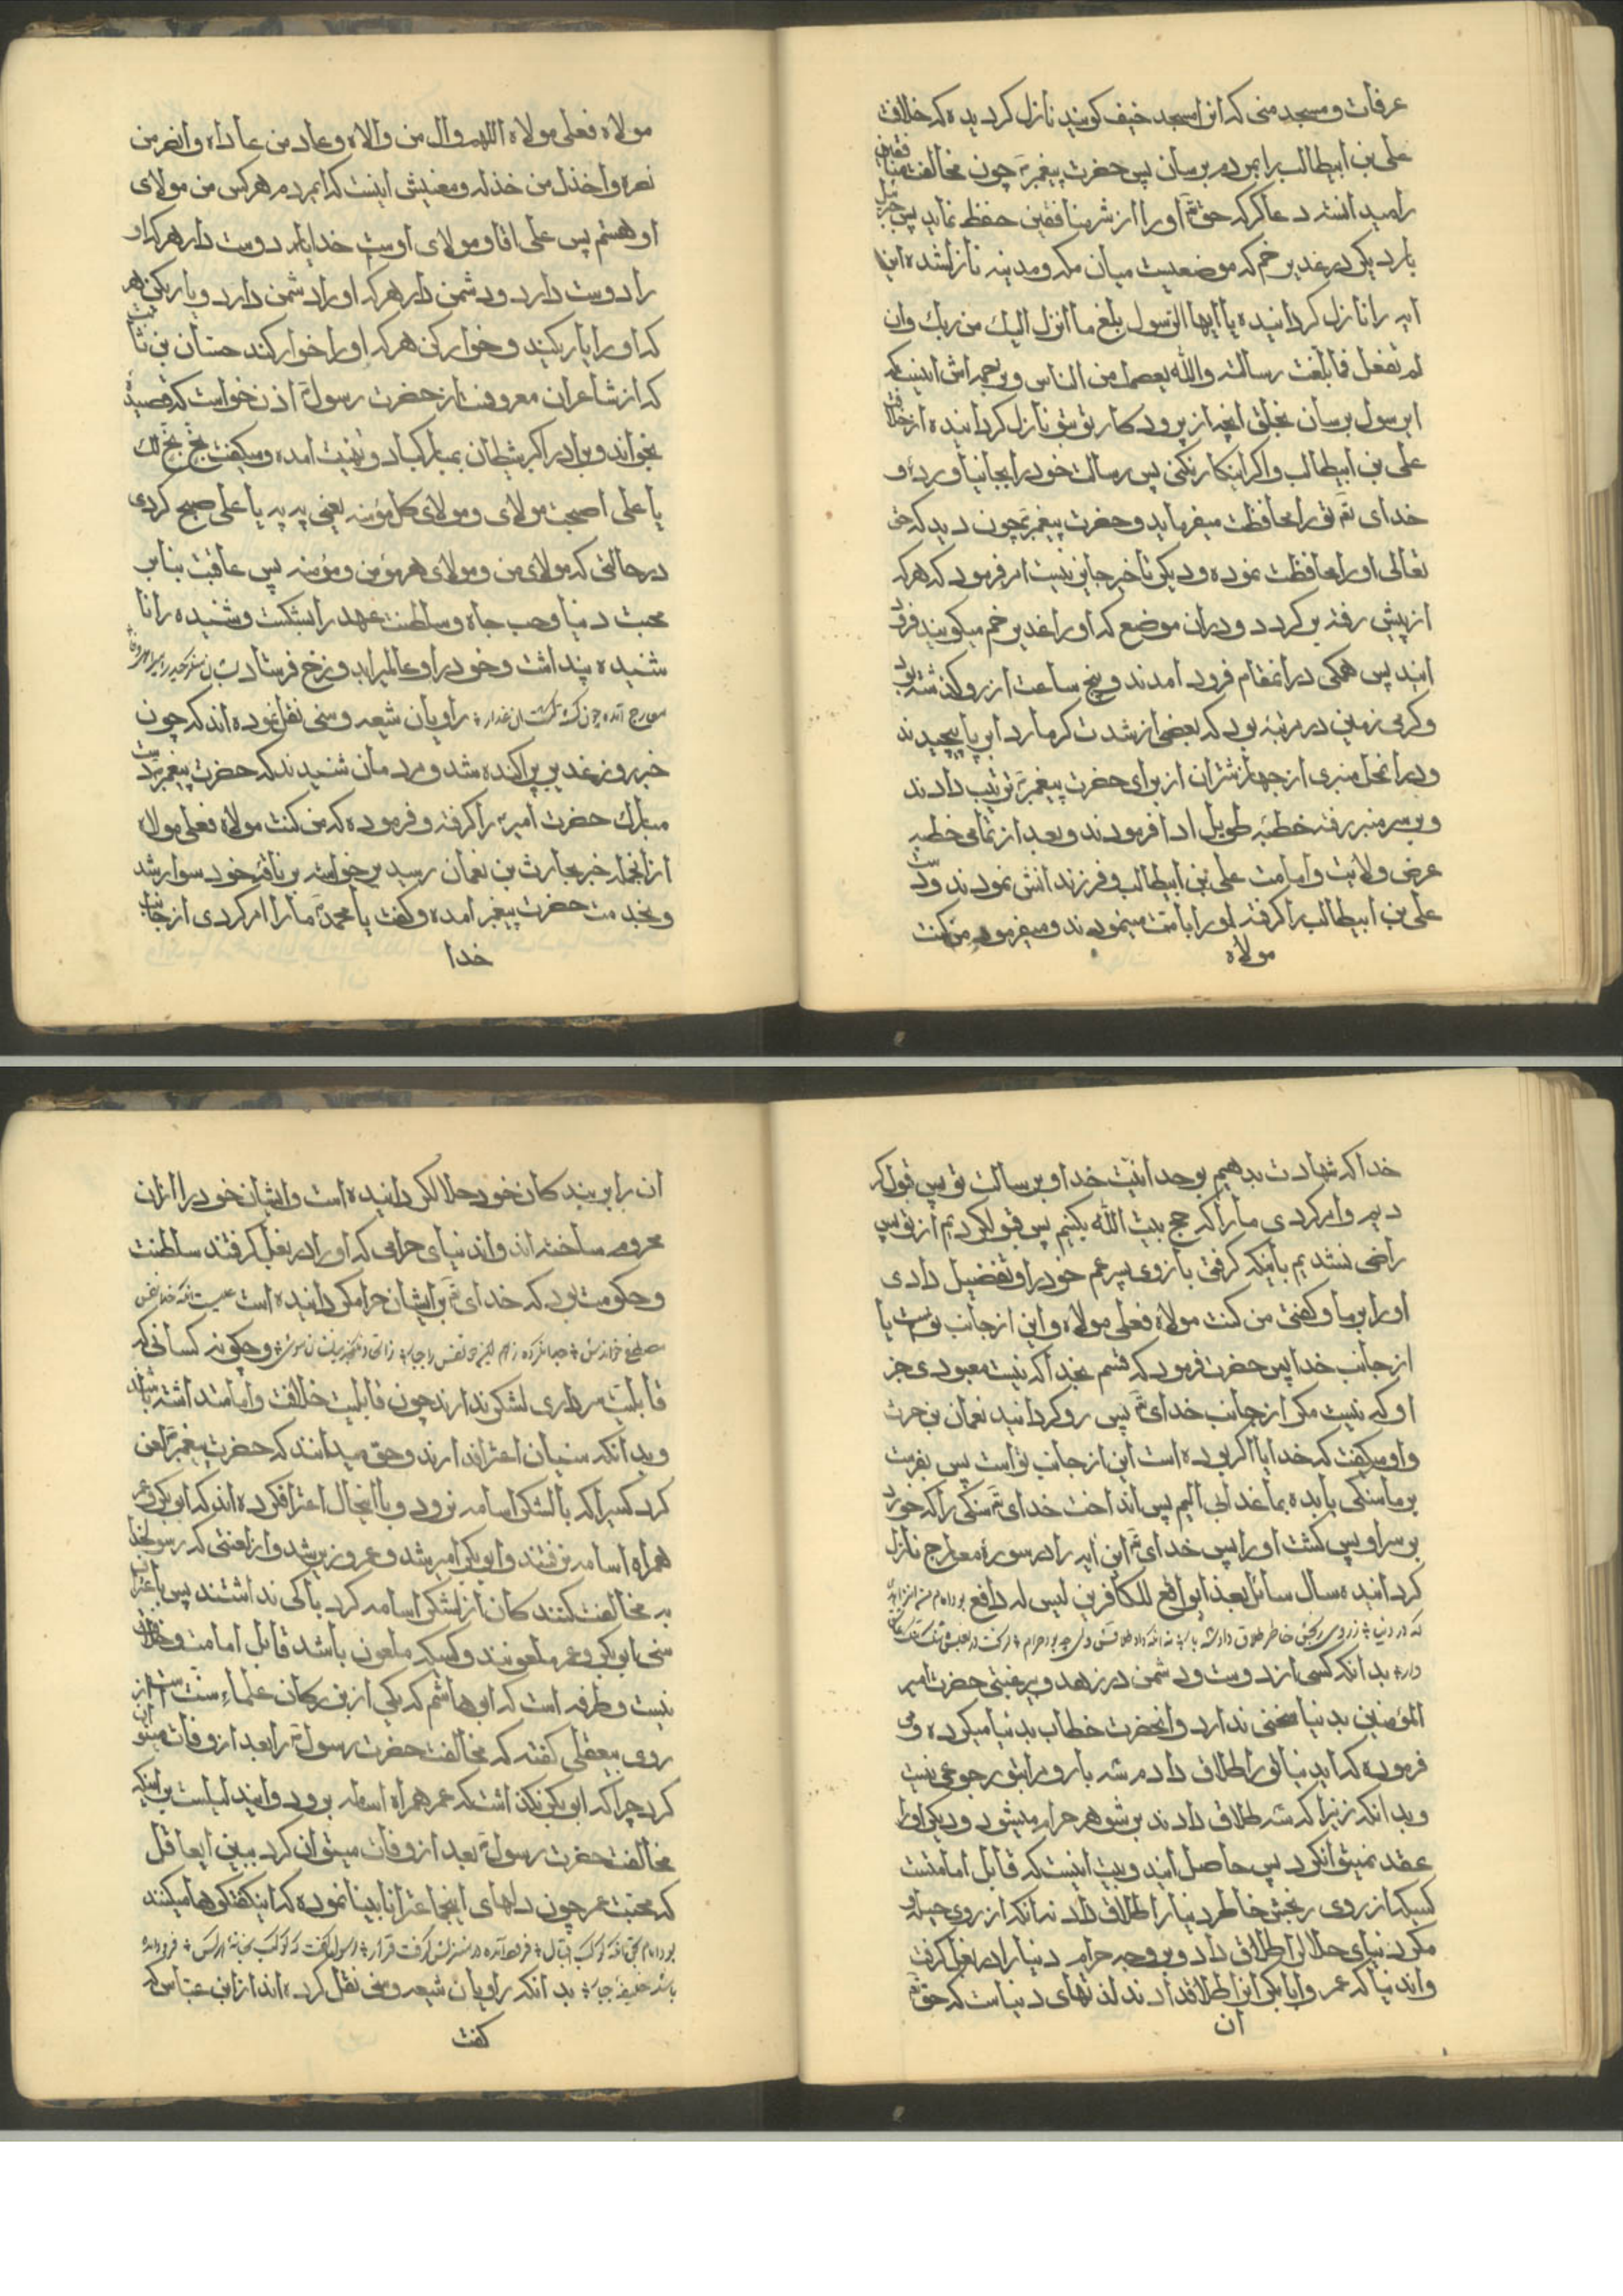 عرفات و مسجد منی که انرا مسجد خیف کویند نازل کردیده که خلافت
علی بن ابیطالب را بمردم برسان پس حضرت پیغمبر چون مخالفت منافقین
را میدانست دعا کرد که حق تع او را از شر منافقین حفظ نماید پس جبرئیل
بار دیکر در غدیر خم که موضعیست میان مکه و مدینه نازل شده این
ایه را نازل کردانیده یا ایها الرسول بلغ ما انزل الیك من ربك وان
لم تفعل فما بلغت رسالته والله یعصمك من الناس و ترجمه اش اینست که
ای رسول برسان بخلق انچه از پرودکار تو بتو نازل کردانیده از خلافت
علی بن ابیطالب و اکر اینکار نکنی پس رسالت خود را بجا نیاورده و
خدای تع تو را محافظت میفرماید و حضرت پیغمبر چون دید که حق
تعالی او را محافظت نموده و دیکر تاخیر جایز نیست امر فرمود که هر که
از پیش رفته بر کردد و در ان موضع که او را غدیر خم میکویند فرود
ایند پس همکی در انمقام فرود امدند و پنج ساعت از روز کذشته بود
و کرمی زمین در مرتبه بود که بعضی از شدت کرما ردا بر پا پیچیدند
و در انمحل منبری از جهاز شتران از برای حضرت پیغمبر ترتیب دادند
و بر سر منبر رفته خطبه طویل ادا فرمودند و بعد از تمامی خطبه
عرض ولایت و امامت علی بن ابیطالب و فرزندانش نمودند و دست
علی بن ابیطالب را کرفته او را بامت مینمودند و میفرمود من کنت
مولاه
مولاه فعلی مولاه اللهم وال من والاه و عاد من عاداه وانصر من
نصره واخذل من خذله و معنیش اینست که ایمردم هر کس من مولای
او هستم پس علی اقا و مولای اوست خدایا دوست دار هر که او
را دوست دارد و دشمن دار هر که او را دشمن دارد و یاری کن هر
که او را یاری کند و خوار کن هر که او را خوار کند حسان بن ثابت
که از شاعران معروفست از حضرت رسول اذن خواست که قصیده
بخواند و برادر اکبر شیطان بمبارکباد و تهنیت امده و میکفت بخ بخ لك
یا علی اصبحت مولای و مولای کل مؤمنه یعنی به به یا علی صبح کردی
در حالتی که مولای من و مولای هر مؤمن و مؤمنه پس عاقبت بنابر
محبت دنیا و حب جاه و سلطنت عهد را بشکست و شنیده را نا
شنیده پنداشت و خود را و عالمیرا بدوزخ فرستاد
راویان شیعه و سنی نقل نموده اند که چون
خبر روز غدیر پراکنده شد و مردمان شنیدند که حضرت پیغمبر دست
مبارك حضرت امیر را کرفته و فرموده که من کنت مولاه فعلی مولاه
از انجمله خبر بحارث بن نعمان رسید برخواسته بر ناقه خود سوار شد
و بخدمت حضرت پیغمبر امده و کفت یا محمد ما را امر کردی از جانب
خدا
خدا که شهادت بدهیم بوحدانیت خدا و برسالت تو پس قبول کر
دیم و امر کردی ما را که حج بیت الله بکنیم پس قبول کردیم از تو پس
راضی نشدیم باینکه کرفتی بازوی پسر عم خود را و تفضیل دادی
او را بر ما و کفتی من کنت مولاه فعلی مولاه و این از جانب توست یا
از جانب خدا پس حضرت فرمود که قسم بخدا که نیست معبودی جز
او که نیست مکر از جانب خدای تع پس رو کردانید نعمان بن حرث
و او میکفت که خدایا اکر بوده است این از جانب تو است پس بفرست
بر ما سنکی یا بده بما عذاب الیم پس انداخت خدای تع سنکی را که خورد
بر سر او پس کشت او را پس خدای تع این ایه را در سوره معارج نازل
کردانیده سال سائل بعذاب واقع للکافرین لیس له دافع
بدانکه کسی از دوست و دشمن در زهد و بی رغبتی حضرت امیر
المؤمنین بدنیا سخنی ندارد و انحضرت خطاب بدنیا میکرده و می
فرموده که ایدنیا تو را طلاق دادم سه بار و مرا بتو رجوعی نیست
و بدانکه زنیرا که سه طلاق دادند بر شوهر حرام میشود و دیکر او را
عقد نمیتوان کرد پس حاصل ایندو بیت اینست که قابل امامتست
کسیکه از روی رنجش خاطر دنیا را طلاق داد نه انکه از روی حیله و
مکر دنیای حلال را طلاق داد و بر وجه حرام دنیا را در بغل کرفت
و اندنیا که عمر و ابابکر انرا طلاق دادند لذتهای دنیاست که حق تع
ان
ان را بر بندکان خود حلال کردانیده است و ایشان خود را از ان
محروم ساخته اند و اندنیای حرامی که او را در بغل کرفتند سلطنت
و حکومت بود که خدای تع بر ایشان حرام کردانیده است
و چکونه کسانی که
قابلیت سرداری لشکر ندارند چون قابلیت خلافت و امامت داشته باشند
و بدانکه سنیان اعتراف دارند و حق میدانند که حضرت پیغمبر لعن
کرد کسیرا که با لشکر اسامه نرود و با اینحال اعتراف کرده اند که ابوبکر و عمر
همراه اسامه نرفتند و ابوبکر امیر شد و عمر وزیر شد و از لعنتی که رسولخدا
به مخالفت کنندکان از لشکر اسامه کرد باکی نداشتند پس باعتراف
سنی ابوبکر و عمر ملعونند و کسیکه ملعون باشد قابل امامت و خلافت
نیست و طرفه است که ابو هاشم که یکی از بزرکان علماء سنت است از
روی بیعقلی کفته که مخالفت حضرت رسول را بعد از وفات میتوان
کرد چرا که ابوبکر نکذاشت که عمر همراه اسامه برود و ایندلیلست بر اینکه
مخالفت حضرت رسول بعد از وفات میتوان کرد ببین ایعاقل
که محبت عمر چون دلهای اینجماعترا نابینا نموده که اینکفتکوها میکنند
بدانکه راویان شیعه و سنی نقل کرده اند از ابن عباس که
کفت